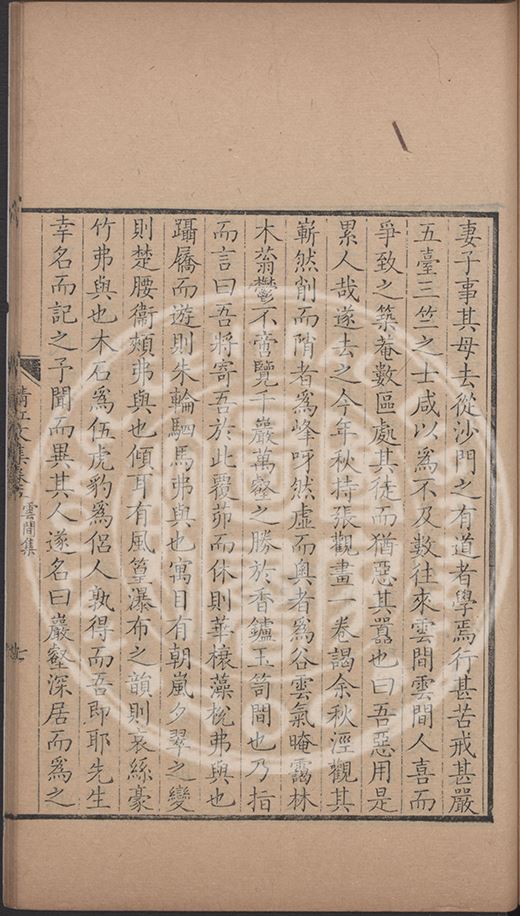 妻子事其母去從沙門之有道者學焉行甚苦戒甚嚴
五臺三竺之士咸以爲不及数往來雲間雲間人喜而
爭致之築菴數區處其徒而猶惡其囂也曰吾惡用是
累人哉遂去之今年秋持張觀畫一卷謁余秋涇觀其
嶄然削而陗者爲峰呀然虛而奧者爲谷雲氣晻靄林
木蓊鬱不啻覽千巖萬壑之勝於香鑪玉笥間也乃指
而言曰吾將寄吾於此覆茆而休則華榱藻梲弗與也
躡屩而遊則朱輪駟馬弗與也寓目有朝嵐夕翠之變
則楚腰衞頰弗與也傾耳有風篁瀑布之韻則哀絲豪
竹弗與也木石爲伍虎豹爲侶人孰得而吾即耶先生
幸名而記之予聞而異其人遂名曰巖壑深居而爲之
清江
集
雲間集